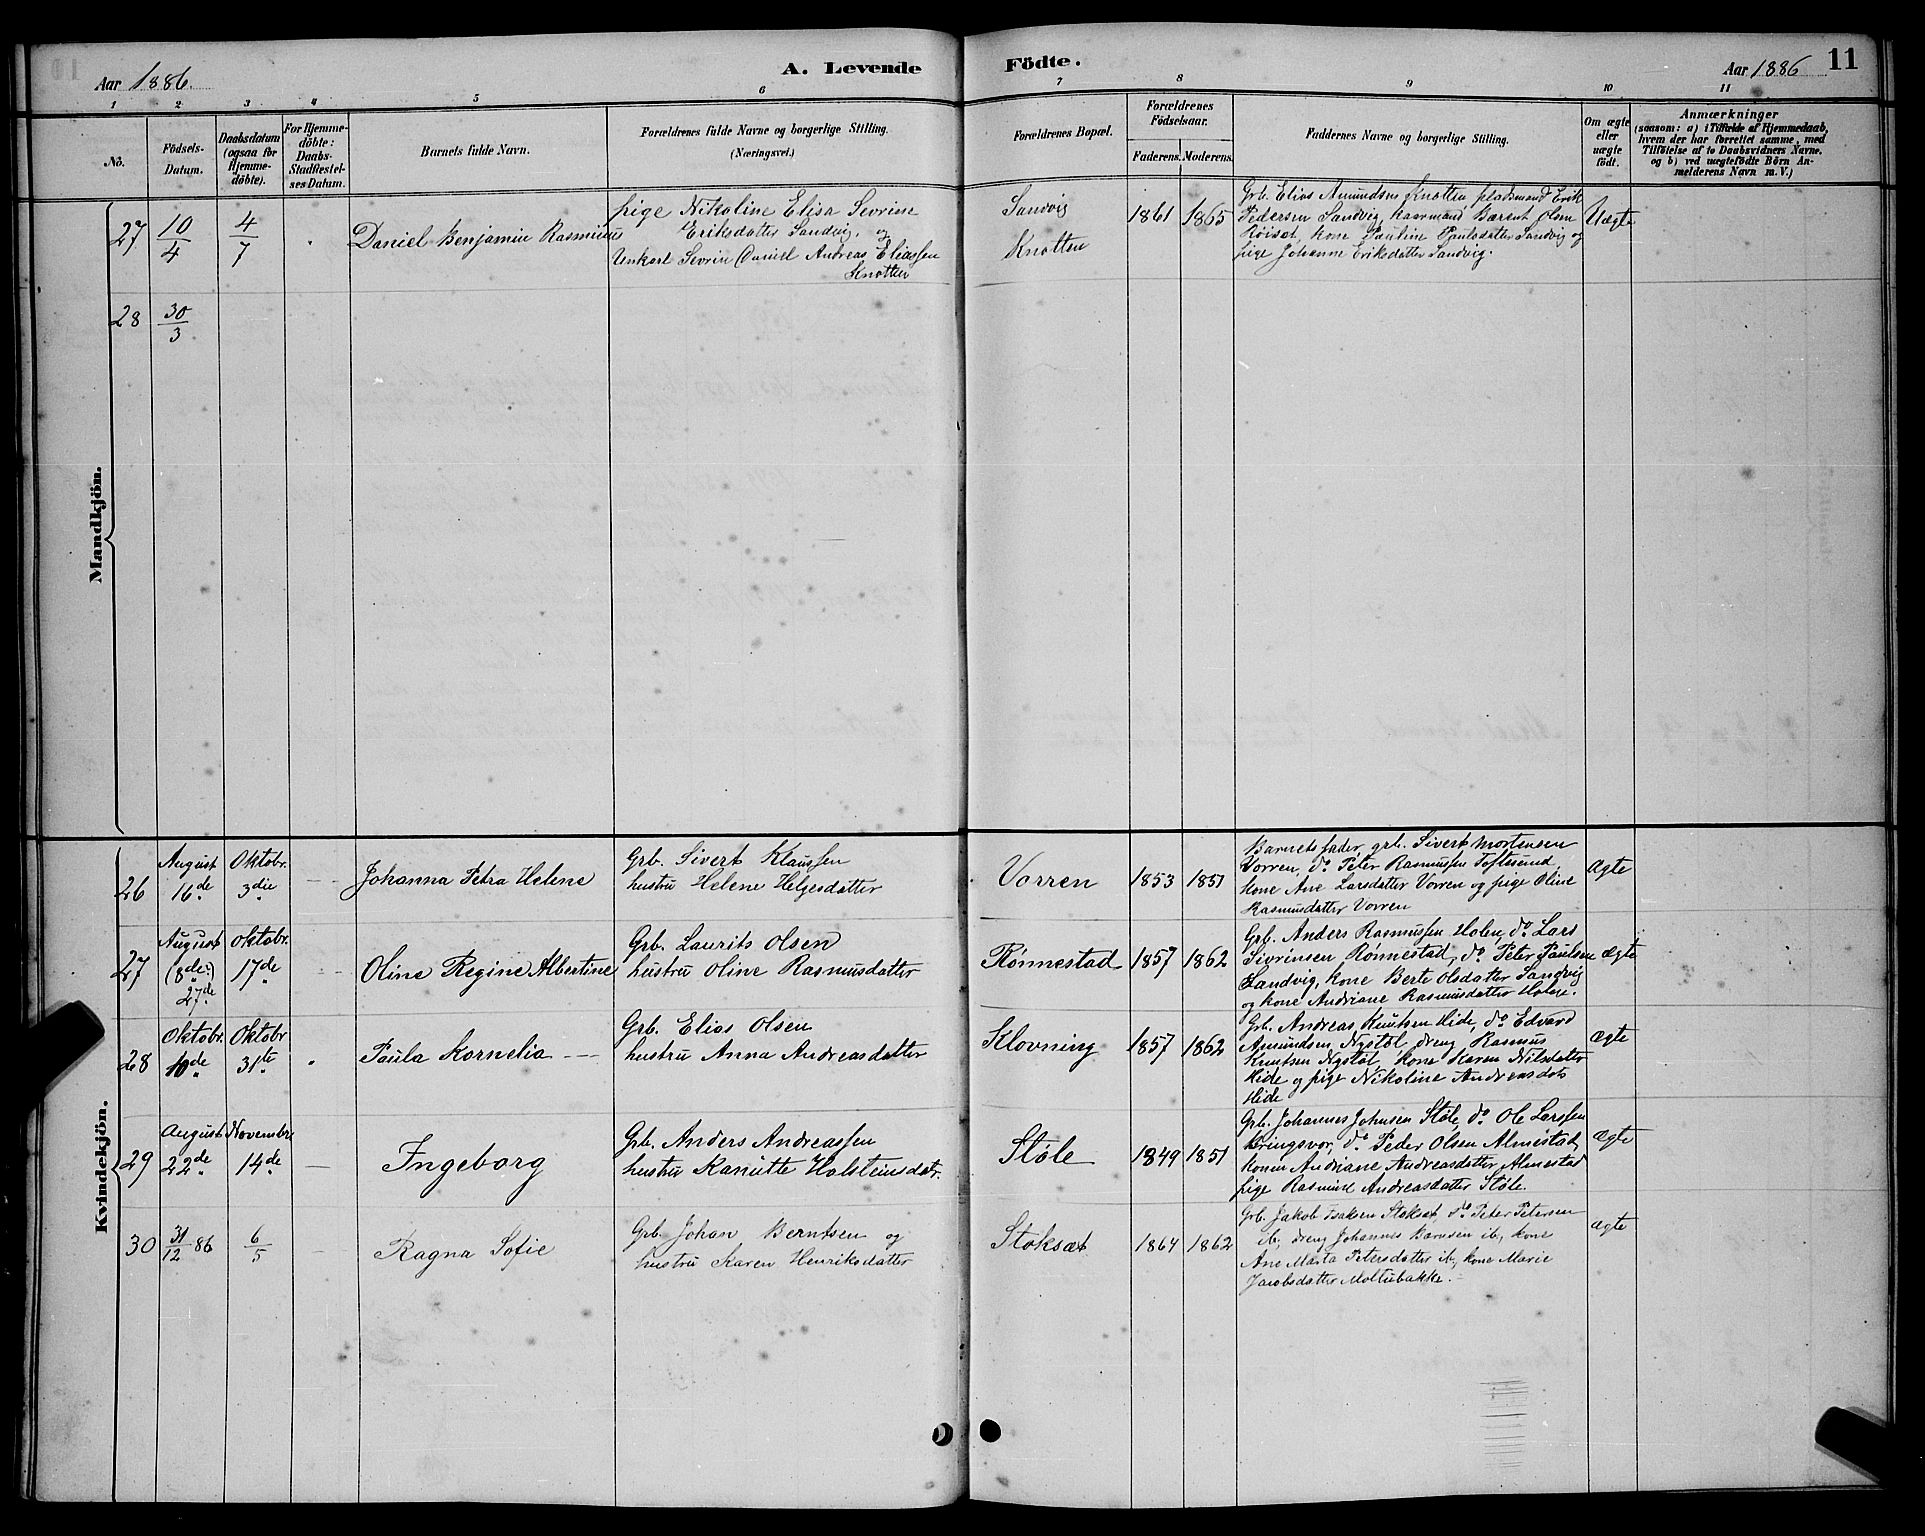 Aar 1886.
A. Levende Födte.
Aar 1886
11
1 2 3 4 5 6 7 8 9 10 11
No.
Födsels-
Datum.
Daabsdatum
(ogsaa for
Hjemme-
döbte).
For Hjemme-
döbte:
Daabs-
Stadfæstel-
ses Datum.
Barnets fulde Navn.
Forældrenes fulde Navne og borgerlige Stilling.
(Næringsvei.)
Forældrenes Bopæl.
Forældrenes
Födselsaar.
Faderens. Moderens.
Faddernes Navne og borgerlige Stilling.
Om ægte
eller
uægte
födt.
Anmærkninger
(saasom: a) i Tilfælde af Hjemmedaab,
hvem der har forrettet samme, med
Tilföielse af to Daabsvidners Navne,
og b) ved uægtefödte Börn An-
melderens Navn m. V.)
Mandkjön.
27
10/4
4/7
Daniel Benjamin Rasminus
pige Nikoline Elisa Sevrine
Eriksdatter Sandvig, og
Unkarl Sevrin Daniel Andreas Eliassen
Knotten
Sandvig
Knotten
1861 1865
Grb. Elias Amundsen Knotten, pladsmand Erik
Pedersen Sandvig, kaarmand Bærent Olsen
Röiset, kone Pauline Paulsdatter Sandvig og
pige Johanne Eriksdatter Sandvig.
Uægte
28
30/3
Kvindekjön.
26
August
16de
Oktobr.
3die
Johanna Petra Helene
Grb. Sivert Klaussen
hustru Helene Helgesdatter
Vorren
1853 1851
Barnets fader, grb. Sivert Mortensen
Vorren, do Peter Rasmussen Toftesund,
kone Ane Larsdatter Vorren og pige Oline
Rasmusdatter Vorren
Ægte
27
August
(8de:)
27de
Oktobr.
17de
Oline Regine Albertine
Grb. Laurits Olsen
hustru Oline Rasmusdatter
Rønnestad
1857 1862
Grb. Anders Rasmussen Holen, do Lars
Sivrinsen Rønnestad, do Peter Paulsen
Sandvig, kone Berte Olsdatter Sandvig
og kone Andriane Rasmusdatter Holen.
ægte
28
Oktobr.
10de
Oktobr
31te
Paula Kornelia
Grb. Elias Olsen
hustru Anna Andreasdatter
Klovning
1857 1862
Grb. Andreas Knutsen Hide, do Edvard
Amundsen Nystøl, dreng Rasmus
Knutsen Nystøl, kone Karen Nilsdatter
Hide og pige Nikoline Andreasdatr
Hide
ægte
29
August
22de
Novembr.
14de
Ingeborg
Grb. Anders Andreassen
hustru Kanutte Holsteinsdatr.
Støle
1849 1851
Grb. Johannes Johnsen Støle, do Ole Larssen
Kringsvor, do Peder Olsen Almestad,
konen Andriane Andreasdatter Almestad
pige Rasmine Andreasdatter Støle.
ægte
30
31/12 86
6/5
Ragna Sofie
Grb. Johan Berntsen og
hustru Karen Henriksdatter
Stoksæt
1864 1862
Grb. Jakob Isaksen Stoksæt, do Peter Petersen
ib, dreng Johannes Berntsen ib, kone
Ane Marta Petersdatter ib, kone Marie
Jacobsdatter Moltubakke.
ægte